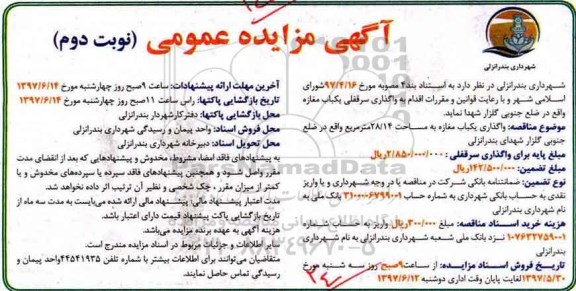 آگهی مزایده عمومی (نوبت دوم)
شهرداری بندرانزلی
شهرداری بندرانزلی در نظر دارد به استناد بند۲ مصوبه مورخ ۹۷/۴/۱۶شورای
اسلامی شهر و با رعایت قوانین و مقررات اقدام به واگذاری سرقفلی یکباب مغازه
واقع در ضلع جنوبی گلزار شهدا نماید.
موضوع مناقصه: واگذاری یکباب مغازه به مساحت ۲۸/۱۴مترمربع واقع در ضلع
جنوبی گلزار شهدای بندرانزلی
مبلغ پایه برای واگذاری سرقفلی : ۲/۸۵۰/۰۰۰/۰۰۰ریال
مبلغ تضمین: ۱۴۲/۵۰۰/۰۰۰ریال
نوع تضمین: ضمانتنامه بانکی شرکت در مناقصه یا در وجه شهرداری و یا واریز
نقدی به حساب بانکی شهرداری به شماره حساب ۳۱۰۰۰۰۶۷۹۹۰۰۱ بانک ملی به
نام شهرداری بندرانزلی
هزینه خرید اسناد مناقصه: مبلغ ۳۰۰/۰۰۰ریال واریز به حساب شماره
۱۰۷۶۳۲۷۵۹۰۰۱ نزد بانک ملی شعبه شهرداری بندرانزلی به نام شهرداری
بندرانزلی
تاریخ فروش اسناد مزایده: از ساعت۹صبح روز سه شنبه مورخ
۱۳۹۷/۵/۳۰لغایت پایان وقت اداری دوشنبه ۱۳۹۷/۶/۱۲
آخرین مهلت ارائه پیشنهادات: ساعت ۹صبح روز چهارشنبه مورخ ۱۳۹۷/۶/۱۴
تاریخ بازگشایی پاکتها: راس ساعت ۱۱صبح روز چهارشنبه مورخ ۱۳۹۷/۶/۱۴
محل بازگشایی پاکتها: دفترکارشهردار بندرانزلی
محل فروش اسناد: واحد پیمان و رسیدگی شهرداری بندرانزلی
محل تحویل اسناد: دبیرخانه شهرداری بندرانزلی
به پیشنهادهای فاقد امضا، مشروط، مخدوش و پیشنهادهایی که بعد از انقضای مدت
مقرر واصل شود و همچنین پیشنهادهای فاقد سپرده یا سپرده‌های مخدوش و یا
کمتر از میزان مقرر ، چک شخصی و نظیر آن ترتیب اثر داده نخواهد شد.
مدت اعتبار پیشنهاد مالی: پیشنهاد مالی ارائه شده می‌بایست به مدت سه ماه از
تاریخ بازگشایی پاکت پیشنهاد قیمت دارای اعتبار باشد.
هزینه آگهی به عهده برنده مزایده می‌باشد.
سایر اطلاعات و جزئیات مربوط در اسناد مزایده مندرج است.
متقاضیان می‌توانند برای اطلاعات بیشتر با شماره تلفن ۴۴۵۴۱۹۳۵واحد پیمان و
رسیدگی تماس حاصل نمایند.